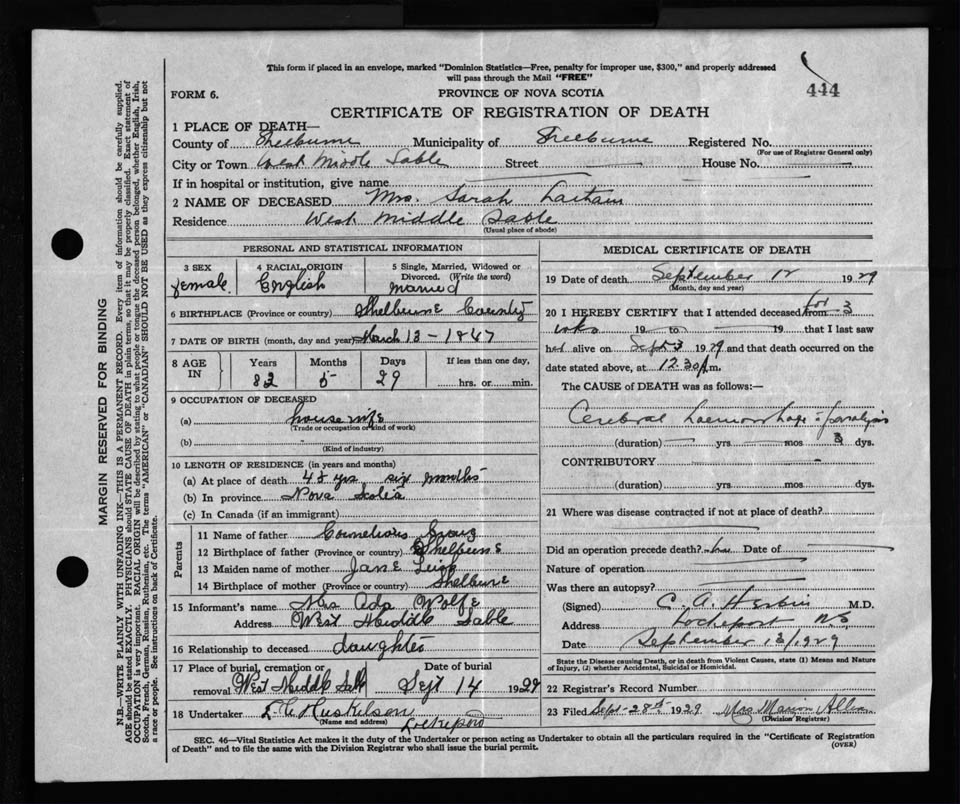 This form if placed in an envelope, marked "Dominion Statistics—Free, penalty for improper use, $300," and properly addressed
will pass through the Mail "FREE"
444
FORM 6.
PROVINCE OF NOVA SCOTIA
CERTIFICATE OF REGISTRATION OF DEATH
1 PLACE OF DEATH—
County of Shelburne Municipality of Shelburne Registered No.
(For use of Registrar General only)
City or Town West Middle Sable Street House No.
If in hospital or institution, give name
2 NAME OF DECEASED Mrs. Sarah
Residence West Middle Sable
(Usual place of abode)
PERSONAL AND STATISTICAL INFORMATION
3 SEX 4 RACIAL ORIGIN 5 Single, Married, Widowed or
Divorced. (Write the word)
female English married
6 BIRTHPLACE (Province or country) Shelburne County
7 DATE OF BIRTH (month, day and year) March 13 - 1847
8 AGE IN Years Months Days If less than one day,
82 5 29 hrs. or min.
9 OCCUPATION OF DECEASED
(a) housewife
(Trade or occupation or kind of work)
(b)
(Kind of industry)
10 LENGTH OF RESIDENCE (in years and months)
(a) At place of death yrs six months
(b) In province Nova Scotia
(c) In Canada (if an immigrant)
Parents
11 Name of father Cornelious
12 Birthplace of father (Province or country) Shelburne
13 Maiden name of mother Jane
14 Birthplace of mother (Province or country) Shelburne
15 Informant's name Mrs Ada Wolfe
Address West Middle Sable
16 Relationship to deceased daughter
17 Place of burial, cremation or Date of burial
removal West Middle Sable Sept 14 1929
18 Undertaker
(Name and address) Lockeport
MEDICAL CERTIFICATE OF DEATH
19 Date of death September 12 1929
(Month, day and year)
20 I HEREBY CERTIFY that I attended deceased from for 3
wks 19 to 19 that I last saw
her alive on Sept 3 1929 and that death occurred on the
date stated above, at 12.30 A.m.
The CAUSE of DEATH was as follows:—
Cerebral haemorrhage - paralysis
(duration) yrs mos 3 dys.
CONTRIBUTORY
(duration) yrs mos dys.
21 Where was disease contracted if not at place of death?
Did an operation precede death? no Date of
Nature of operation
Was there an autopsy?
(Signed) C. A. Herbin M.D.
Address Lockeport NS
Date September 13/1929
State the Disease causing Death, or in death from Violent Causes, state (1) Means and Nature
of Injury, (2) whether Accidental, Suicidal or Homicidal.
22 Registrar's Record Number
23 Filed Sept-28th 1929 Mrs Marion Allen
(Division Registrar)
SEC. 46—Vital Statistics Act makes it the duty of the Undertaker or person acting as Undertaker to obtain all the particulars required in the "Certificate of Registration
of Death" and to file the same with the Division Registrar who shall issue the burial permit.
(OVER)
MARGIN RESERVED FOR BINDING
N.B.—WRITE PLAINLY WITH UNFADING INK—THIS IS A PERMANENT RECORD. Every item of information should be carefully supplied.
AGE should be stated EXACTLY. PHYSICIANS should STATE CAUSE OF DEATH in plain terms, so that it may be properly classified. Exact statement of
OCCUPATION is very important. RACIAL ORIGIN will be described by stating to what people or tongue the deceased person belonged, whether English, Irish,
Scotch, French, German, Russian, Ruthenian, etc. The terms "AMERICAN" or "CANADIAN" SHOULD NOT BE USED as they express citizenship but not
a race or people. See instructions on back of Certificate.